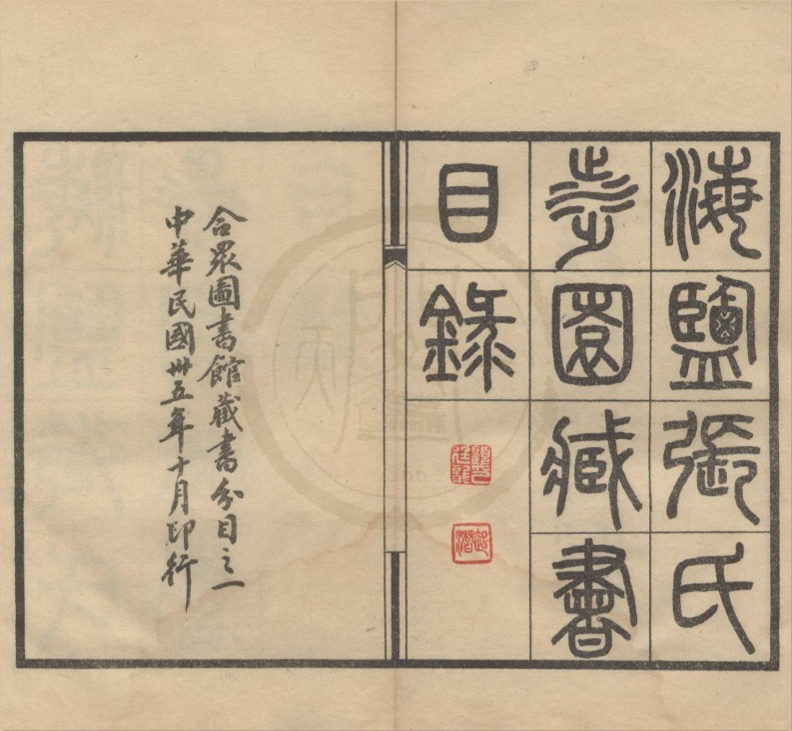 海鹽張氏
涉園藏書
目錄
顧廷龍
起潛
合眾圖書館藏書分目之一
中華民國卅五年十月印行